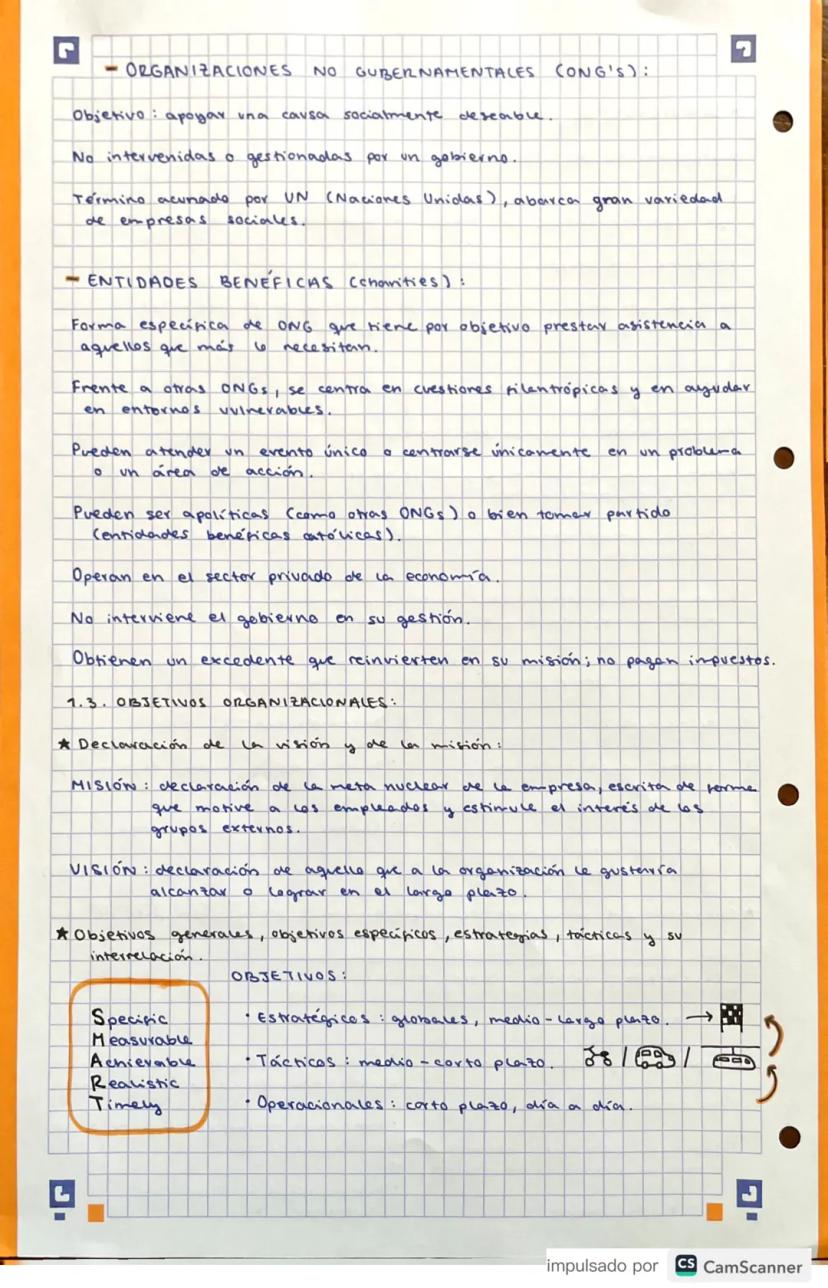 - ORGANIZACIONES NO GUBERNAMENTALES (ONG'S):
Objetivo: apoyar una causa socialmente deseable.
No intervenidas o gestionadas por un gobierno.
Término acunado por UN (Naciones Unidas), abarca gran variedad
de empresas sociales.
- ENTIDADES BENÉFICAS (charities):
Forma específica de ONG que tiene por objetivo prestar asistencia a
aquellos que más lo necesitan.
Frente a otras ONGs, se centra en cuestiones filantrópicas y en ayudar
en entornos vulnerables.
Pueden atender un evento único o centrarse únicamente en un problema
o un área de acción.
Pueden ser apolíticas (como otras ONGs) o bien tomar partido
(entidades benéficas católicas).
Operan en el sector privado de la economía.
No interviene el gobierno en su gestión.
Obtienen un excedente que reinvierten en su misión; no pagan impuestos.
1.3. OBJETIVOS ORGANIZACIONALES:
★ Declaración de la visión y de la misión:
MISIÓN: declaración de la meta nuclear de la empresa, escrita de forma
que motive a los empleados y estimule el interés de los
grupos externos.
VISIÓN: declaración de aquello que a la organización le gustaría
alcanzar o lograr en el largo plazo.
★ Objetivos generales, objetivos específicos, estrategias, tácticas y su
interrelación.
OBJETIVOS:
Specific
Measurable
Achievable
Realistic
Timely
· Estratégicos: globales, medio-largo plazo. →
· Tácticos: medio-corto plazo. / /
· Operacionales: corto plazo, día a día.
impulsado por CS CamScanner